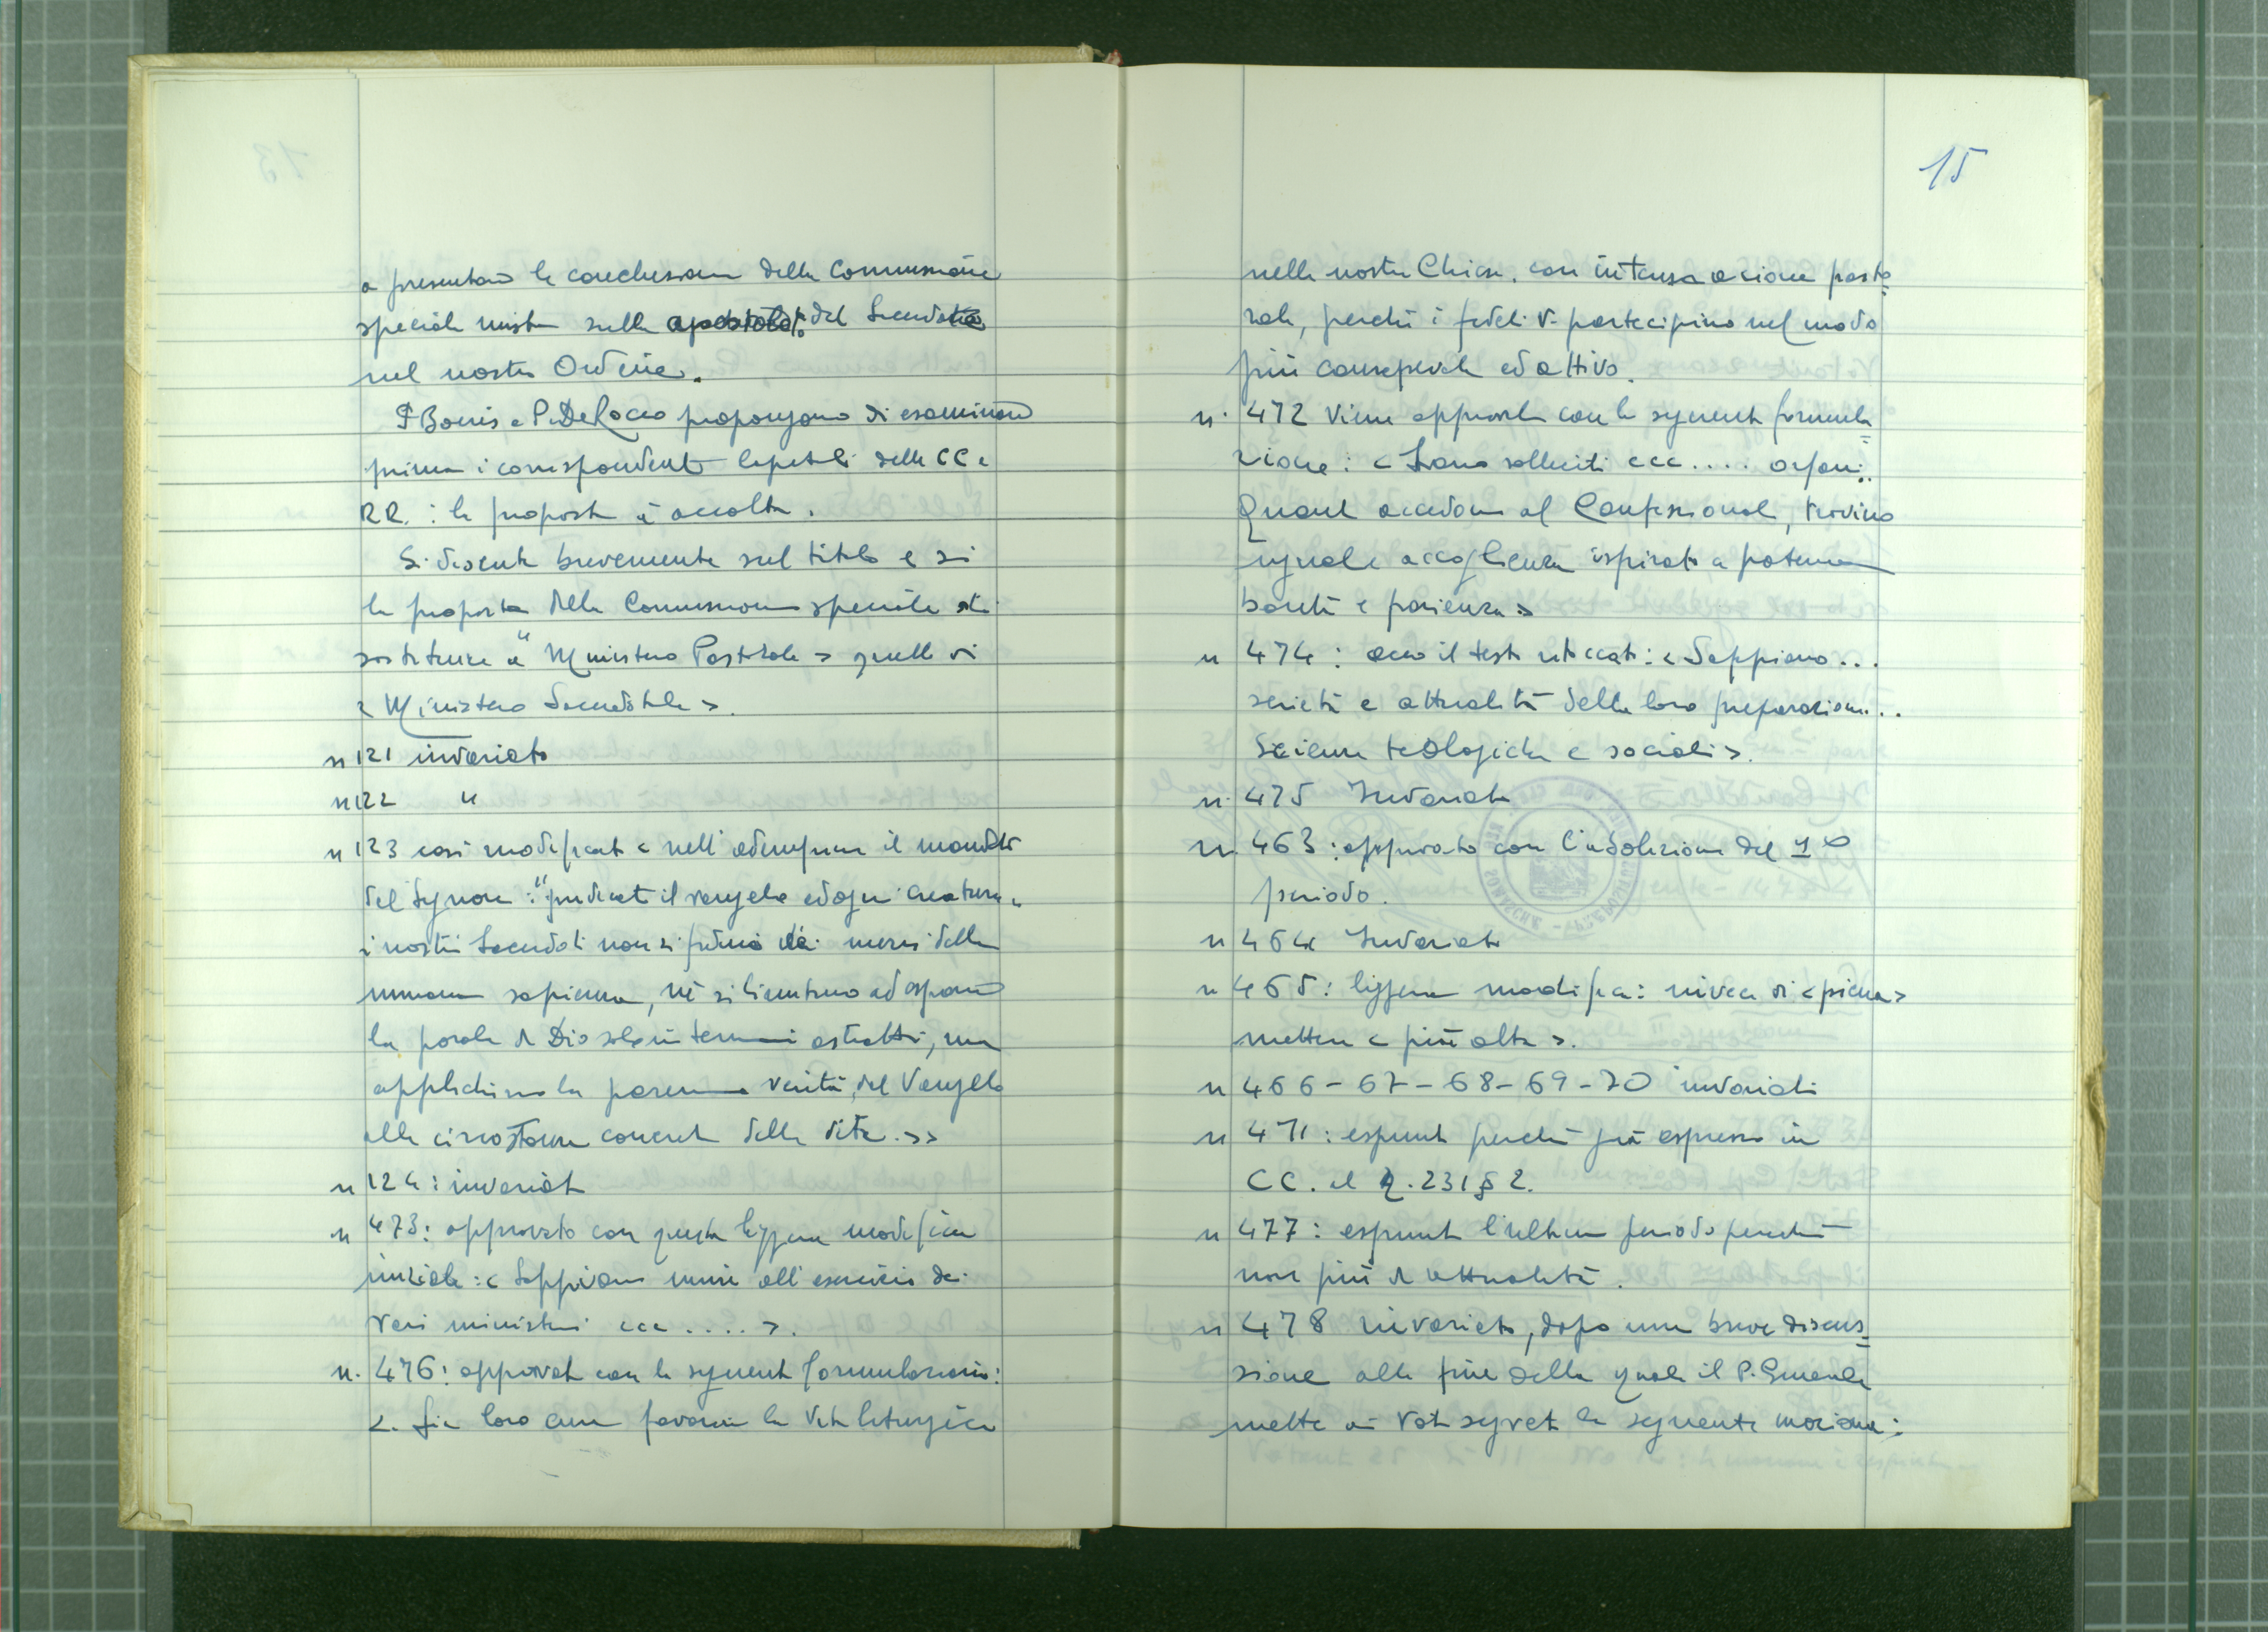 a presentare le conclusioni della Commissione
speciale mista sulla apostolato del Sacerdote
nel nostro Ordine.
P Boeris e P. De Rocco propongono di esaminare
prima i corrispondenti capitoli delle CC e
RR. : la proposta è accolta.
Si discute brevemente sul titolo e si
la proposta della Commissione speciale di
sostituire a "Ministero Pastorale > quello di
< Ministero Sacerdotale >.
n 121 invariato
n 122 "
n 123 così modificato < nell'adempiere il mandato
del Signore : "predicate il vangelo ad ogni creatura"
i nostri Sacerdoti non si fidino dei mezzi della
umana sapienza, né si limitino ad esporre
la parola di Dio solo in termini astratti, ma
applichino la perenne verità del Vangelo
alle circostanze concrete della vita.>>
n 124 : invariato
n 473: approvato con questa leggera modifica
iniziale : < Sappiano unire all'esercizio dei
vari ministeri ecc .... >.
n. 476: approvato con la seguente formulazione:
<. Sia loro cura favorire la Vita liturgica
15
nelle nostre Chiese, con intensa azione pasto=
rale, perché i fedeli vi partecipino nel modo
più consapevole ed attivo.
n. 472 viene approvato con la seguente formula=
zione : < Siano solleciti ecc .... orfani.
Quanti accedono al Confessionale, trovino
uguale accoglienza ispirata a paterna
bontà e pazienza >
n 474 : ecco il testo ritoccato : < Sappiano...
serietà e attualità della loro preparazione...
Scienze teologiche e sociali >.
n. 475 Invariato
n. 463 : approvato con l'abolizione del 1°
periodo.
n 464 Invariato
n 465 : leggera modifica : invece di < piena >
mettere < più alta >.
n 466 - 67 - 68 - 69 - 70 invariati
n 471 : espunto perché già espresso in
CC. al n. 231 § 2.
n 477 : espunto l'ultimo periodo perché
non più di attualità.
n 478 invariato, dopo una breve discus=
sione alla fine della quale il P. Generale
mette ai voti segreti la seguente mozione :